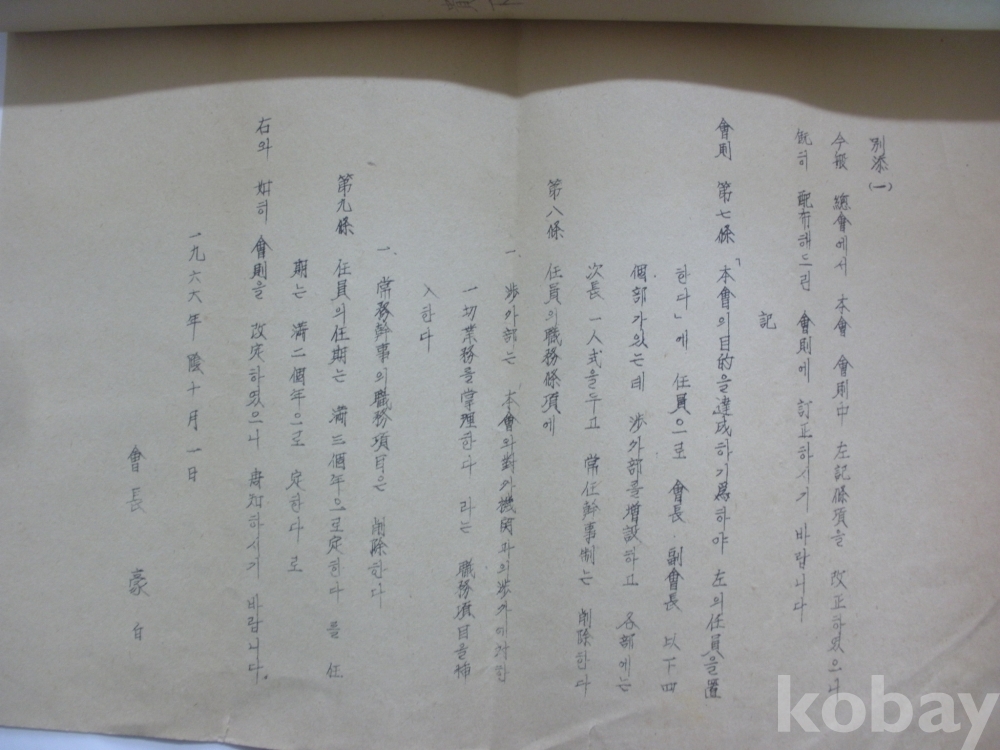 別添(一)
今般 總會에서 本會 會則中 左記條項을 改正하였으니
旣히 配布해드린 會則에 訂正하시기 바랍니다
記
會則 第七條 「本會의 目的을 達成하기 爲하야 左의 任員을 置
한다」에 任員으로 會長·副會長 以下 四
個部가 있는데 涉外部를 增設하고 各部에는
次長 一人式을 두고 常任幹事制는 削除한다
第八條 任員의 職務條項에
一、 涉外部는 本會와 對外機関과의 涉外에 對한
一切業務를 掌理한다 라는 職務項目을 揷
入한다
一、 常務幹事의 職務項目은 削除한다
第九條 任員의 任期는 滿三個年으로 定한다 를 任
期는 滿二個年으로 定한다 로
右와 如히 會則을 改定하였으니 하시기 바랍니다.
一九六六年 陰十月一日
會長 白
kobay